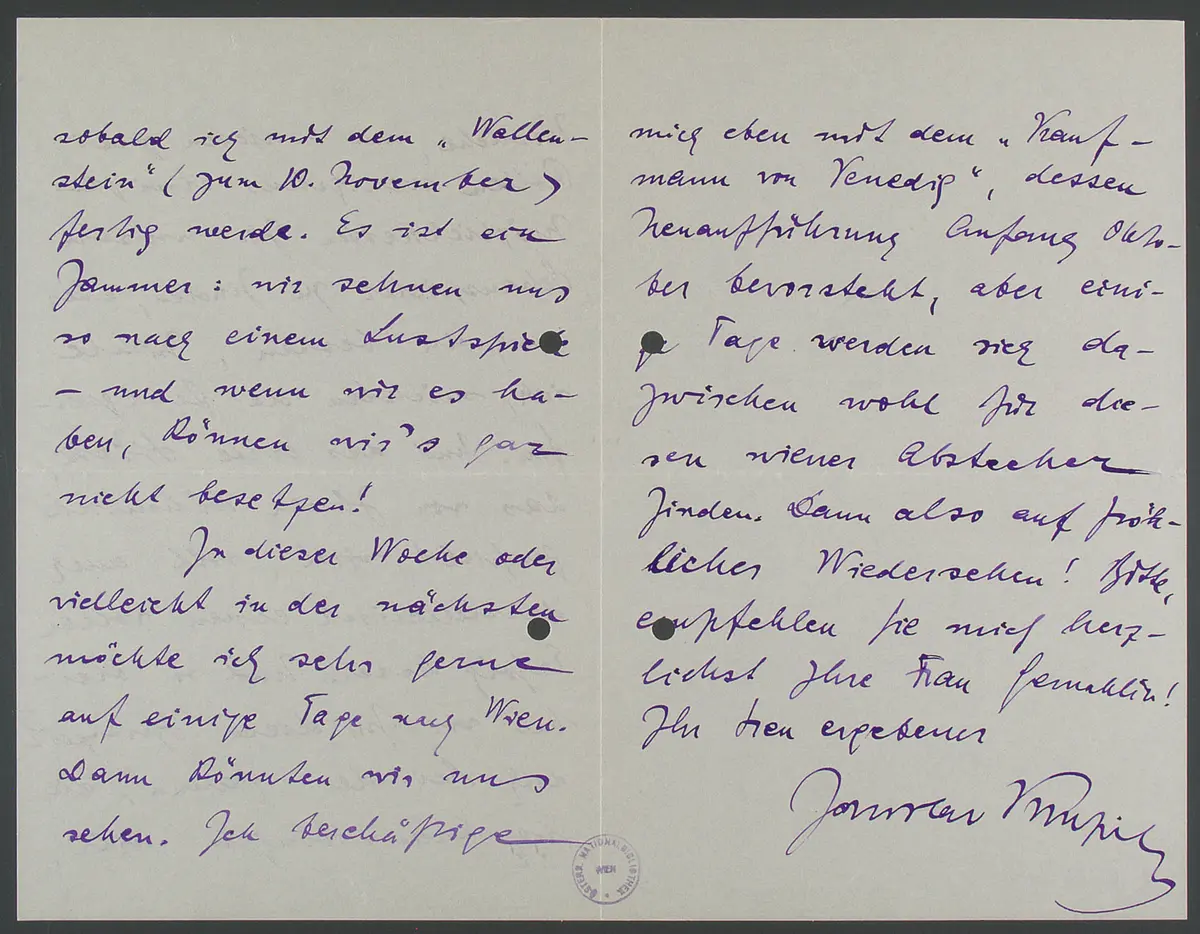 sobald ich mit dem „Wallen-
stein“ (zum 10. November)
fertig werde. Es ist ein
Jammer: wir sehnen uns
so nach einem Lustspiele
– und wenn wir es ha-
ben, können wir's gar
nicht besetzen!
In dieser Woche oder
vielleicht in der nächsten
möchte ich sehr gerne
auf einige Tage nach Wien.
Dann könnten wir uns
sehen. Ich beschäftige
mich eben mit dem „Kauf-
mann von Venedig“, dessen
Neuaufführung Anfang Okto-
ber bevorsteht, aber eini-
ge Tage werden sich da-
zwischen wohl für die-
sen wiener Abstecher
finden. Dann also auf fröh-
liches Wiedersehen! Bitte,
empfehlen Sie mich herz-
lichst Ihre Frau Gemahlin!
Ihr treu ergebener
Jaroslav Kvapil
ÖSTERR. NATIONALBIBLIOTHEK
WIEN